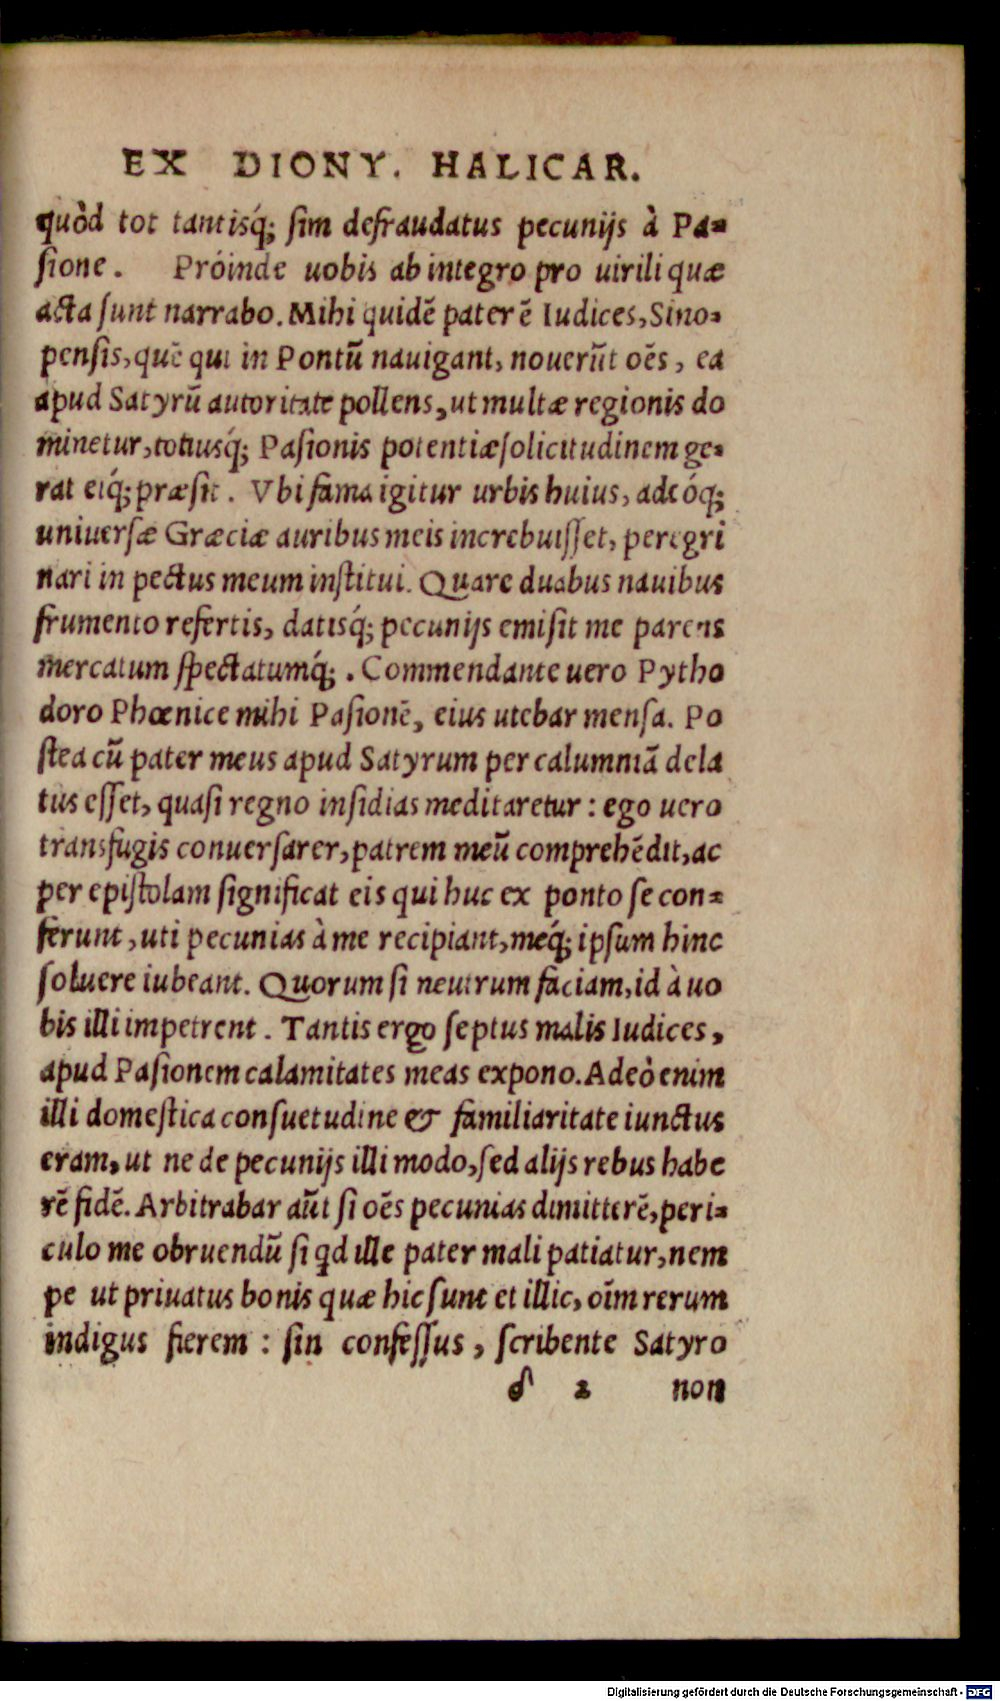 EX DIONY. HALICAR.
quòd tot tantisq́; ſim defraudatus pecunijs à Pa-
ſione. Próinde uobis ab integro pro uirili quæ
acta ſunt narrabo. Mihi quidē pater ē Iudices, Sino-
penſis, quē qui in Pontū nauigant, nouerūt oēs, ea
apud Satyrū autoritate pollens, ut multæ regionis do
minetur, totiusq́; Paſionis potentiæ ſolicitudinem ge-
rat eiq́; præſit. Vbi fama igitur urbis huius, adeóq;
uniuerſæ Græciæ auribus meis increbuiſſet, peregri
nari in pectus meum inſtitui. Quare duabus nauibus
frumento refertis, datisq́; pecunijs emiſit me parens
mercatum ſpectatumq́;. Commendante uero Pytho
doro Phœnice mihi Paſionē, eius utebar menſa. Po
ſtea cū pater meus apud Satyrum per calumniā dela
tus eſſet, quaſi regno inſidias meditaretur: ego uero
transfugis conuerſarer, patrem meū comprehēdit, ac
per epiſtolam ſignificat eis qui huc ex ponto ſe con-
ferunt, uti pecunias à me recipiant, meq́; ipſum hinc
ſoluere iubeant. Quorum ſi neutrum faciam, id à uo
bis illi impetrent. Tantis ergo ſeptus malis Iudices,
apud Paſionem calamitates meas expono. Adeò enim
illi domeſtica conſuetudine & familiaritate iunctus
eram, ut ne de pecunijs illi modo, ſed alijs rebus habe
rē fidē. Arbitrabar aūt ſi oēs pecunias dimitterē, peri-
culo me obruendū ſi qd ille pater mali patiatur, nem
pe ut priuatus bonis quæ hic ſunt et illic, oīm rerum
indigus fierem: ſin confeſſus, ſcribente Satyro
♂ 2 non
Digitalisierung gefördert durch die Deutsche Forschungsgemeinschaft - DFG